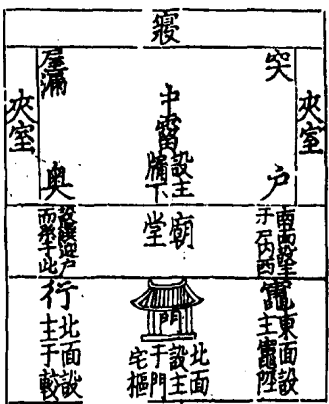 寢
夾室
突
戶
中霤
設主
牖下
屋漏
奧
夾室
南面設主
于戶內西
廟堂
設饌迎尸
而祭于此
竈
東面設
主竈陘
門
北面
設主
于門
宅樞
行
北面設
主于較